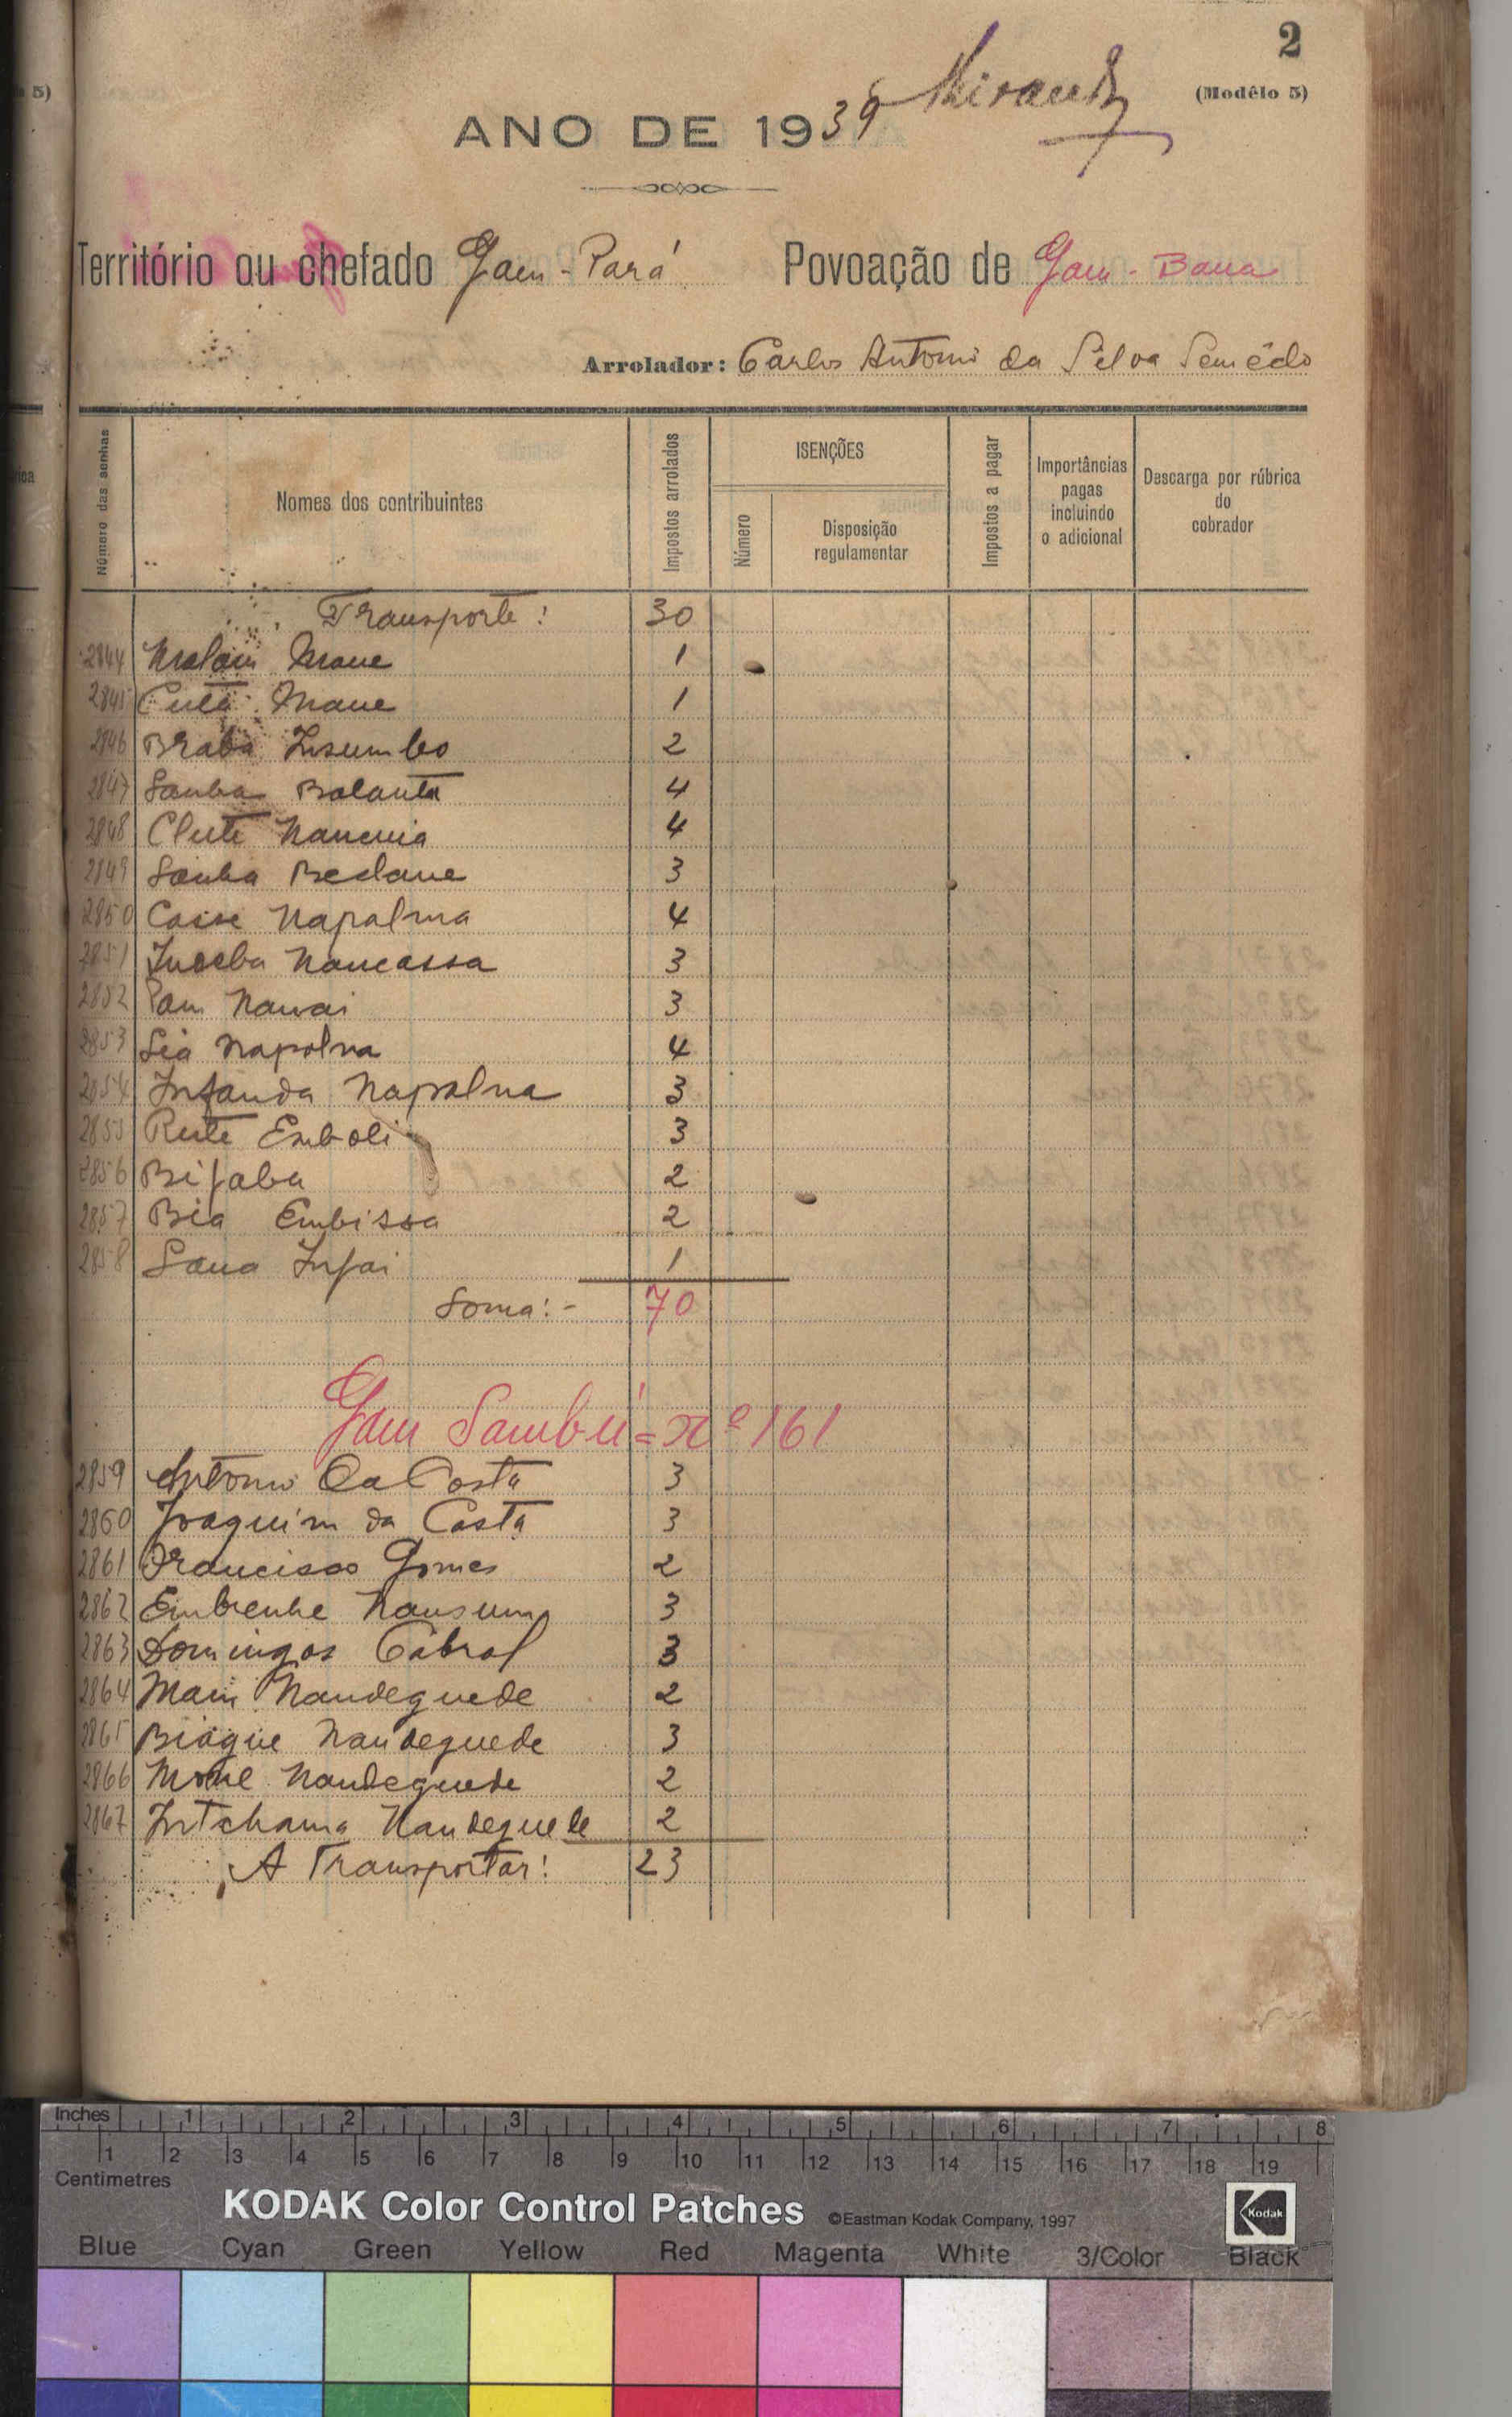 2
(Modêlo 5)
ANO DE 1939
Território ou chefado Gam-Pará Povoação de Gam-Bana
Arrolador: Carlos Antonio da Silva Semêdo
Número das senhas
Nomes dos contribuintes
Impostos arrolados
ISENÇÕES
Número
Disposição regulamentar
Impostos a pagar
Importâncias pagas incluindo o adicional
Descarga por rúbrica do cobrador
Transporte: 30
2844 Malam Mane 1
2845 Mane 1
2846 Braba Insumbo 2
2847 Sanha Balanta 4
2848 Clute 4
2849 Sanha Beslane 3
2850 Casse Napalna 4
2851 Nancassa 3
2852 3
2853 Sia Napalna 4
2854 Infanda Napalna 3
2855 Rute Emboli 3
2856 Bifaba 2
2857 Bia Embissa 2
2858 Sana Infai 1
Soma:- 70
Gam Sambú = nº 161
2859 Antonio da Costa 3
2860 Joaquim da Costa 3
2861 Francisco Gomes 2
2862 Embenhe Nansum 3
2863 Domingos Cabral 3
2864 Nandeguede 2
2865 Biague Nandeguede 3
2866 Nandeguede 2
2867 Intchama Nandeguede 2
A Transportar: 23
Inches 1 2 3 4 5 6 7 8
1 2 3 4 5 6 7 8 9 10 11 12 13 14 15 16 17 18 19
Centimetres
KODAK Color Control Patches ©Eastman Kodak Company, 1997 Kodak
Blue Cyan Green Yellow Red Magenta White 3/Color Black